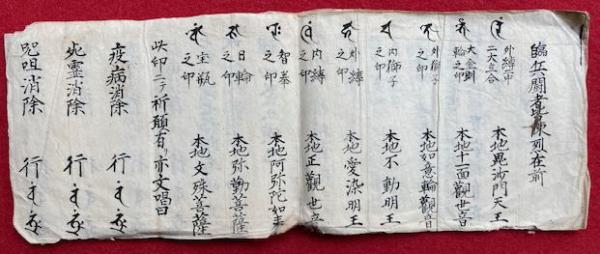 臨兵闘者皆陣列在前
外縛印二大立合 本地毘沙門天王
大金剛輪之印 本地十一面觀世音
外獅子之印 本地如意輪觀音
内獅子之印 本地不動明王
外縛之印 本地愛染明王
内縛之印 本地正觀世音
智拳之印 本地阿弥陀如来
日輪之印 本地弥勒菩薩
宝瓶之印 本地文殊菩薩
此印ニテ祈願有リ亦文唱曰
疫病消除 行
死霊消除 行
咒咀消除 行